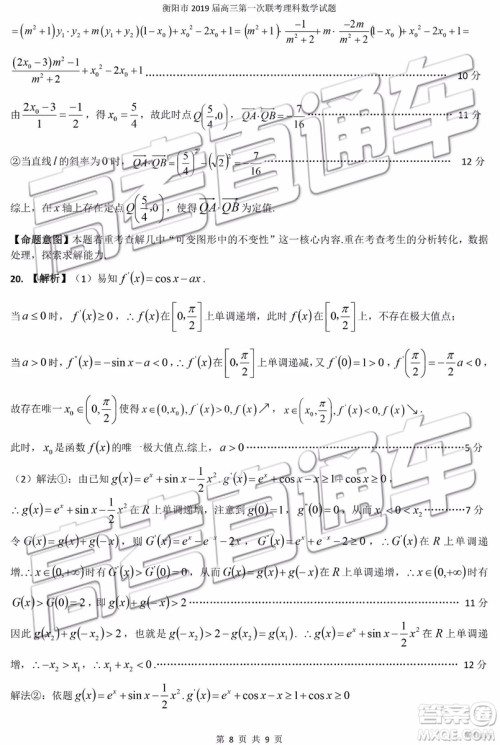 衡阳市 2019 届高三第一次联考理科数学试题
=(m²+1)y₁·y₂+m(y₁+y₂)(1-x₀)+x₀²-2x₀+1=(m²+1)·\frac{-1}{m²+2}+m·\frac{-2m}{m²+2}(1-x₀)+x₀²-2x₀+1=
\frac{(2x₀-3)m²-1}{m²+2}+x₀²-2x+1 ………… 10 分
由 \frac{2x₀-3}{1}=\frac{-1}{2}，得 x₀=\frac{5}{4}，故此时点 Q(\frac{5}{4},0)，\overrightarrow{QA}·\overrightarrow{QB}=-\frac{7}{16} ………… 11 分
②当直线 l 的斜率为 0 时，\overrightarrow{QA}·\overrightarrow{QB}=(\frac{5}{4})²-(√2)²=-\frac{7}{16} 12 分
综上，在 x 轴上存在定点 Q(\frac{5}{4},0)，使得 \overrightarrow{QA}·\overrightarrow{QB} 为定值.
【命题意图】本题着重考查解几中“可变图形中的不变性”这一核心内容.重在考查考生的分析转化，数据
处理，探索求解能力.
20. 【解析】（1）易知 f'(x)=cos x-ax.
当 a≤0 时，f'(x)≥0，∴f(x)在[0,\frac{π}{2}]上单调递增，此时 f(x)在[0,\frac{π}{2}]上，不存在极大值点；
当 a>0 时，f''(x)=-sin x-a<0，∴f'(x)在[0,\frac{π}{2}]上单调递减，又 f'(0)=1>0，f'(\frac{π}{2})=-\frac{π}{2}a<0，
故存在唯一 x₀∈(0,\frac{π}{2})，使得 x∈(0,x₀),f(x)↗，x∈(x₀,\frac{π}{2}),f(x)↘.
此时，x₀是函数 f(x)的唯一极大值点.综上，a>0 ………… 5 分
（2）解法①：由已知 g(x)=e^x+sin x-\frac{1}{2}x².g'(x)=e^x+cos x-x>0
∴g(x)=e^x+sin x-\frac{1}{2}x²在 R 上单调递增，注意到 g(0)=1，∴x₁<0<x₂ ………… 7 分
令 G(x)=g(x)+g(-x)，则 G(x)=e^x+sin x-\frac{1}{2}x²，∴G'(x)=e^x+cos x-x>0 在 R 上单调递
增.∴x∈(0,+∞)时有 G'(x)>G'(0)=0，从而 G(x)=g(x)+g(-x)在(0,+∞)上单调递增，x∈(0,+∞)时有
G(x)>G(0)=2，即 g(x)+g(-x)>2 ………… 11 分
因此 g(-x₂)+g(x₂)>2，∴g(-x₂)>2-g(x₂)=g(x₁)，∴g(x)=e^x+sin x-\frac{1}{2}x²在 R 上单调递
增，∴-x₂>x₁，∴x₁+x₂<0 ………… 12 分
解法②：依题 g(x)=e^x+sin x-\frac{1}{2}x².g'(x)=e^x+cos x-x>0
第 8 页 共 9 页
高考直通车